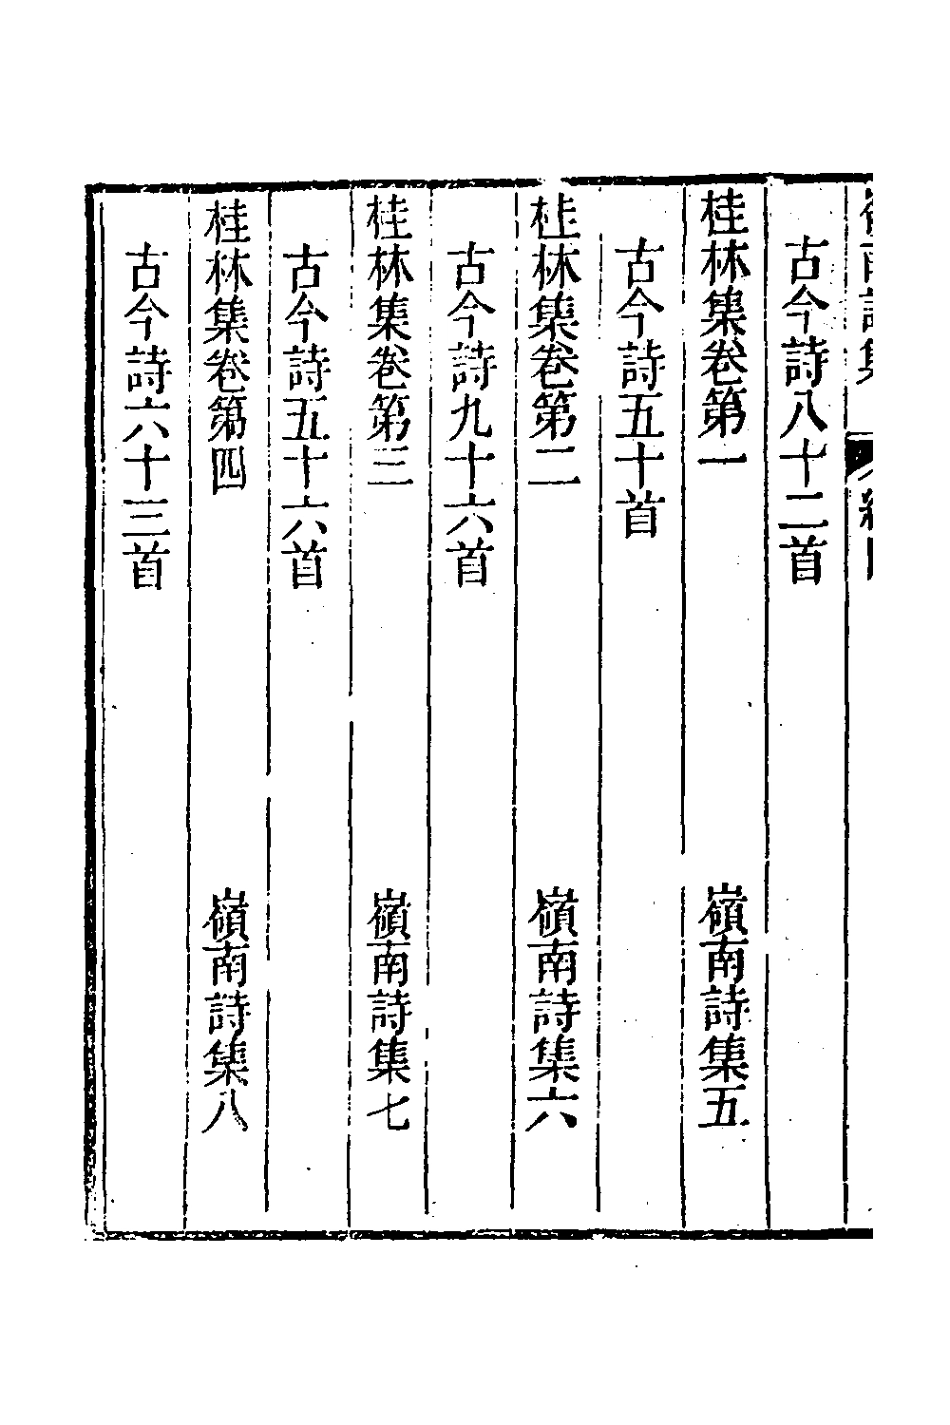 古今詩八十二首
桂林集卷第一 嶺南詩集五
古今詩五十首
桂林集卷第二 嶺南詩集六
古今詩九十六首
桂林集卷第三 嶺南詩集七
古今詩五十六首
桂林集卷第四 嶺南詩集八
古今詩六十三首